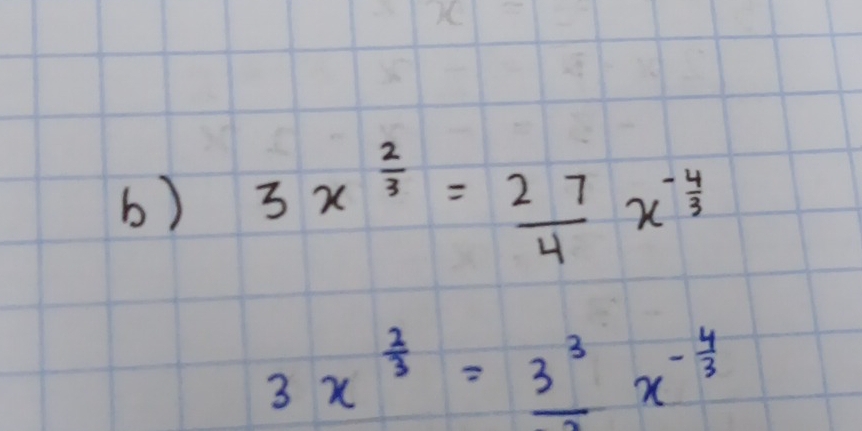 b) 3 x^{2/3} = 27/4 x^{-4/3}
3 x^{2/3} = 3^3/ x^{-4/3}